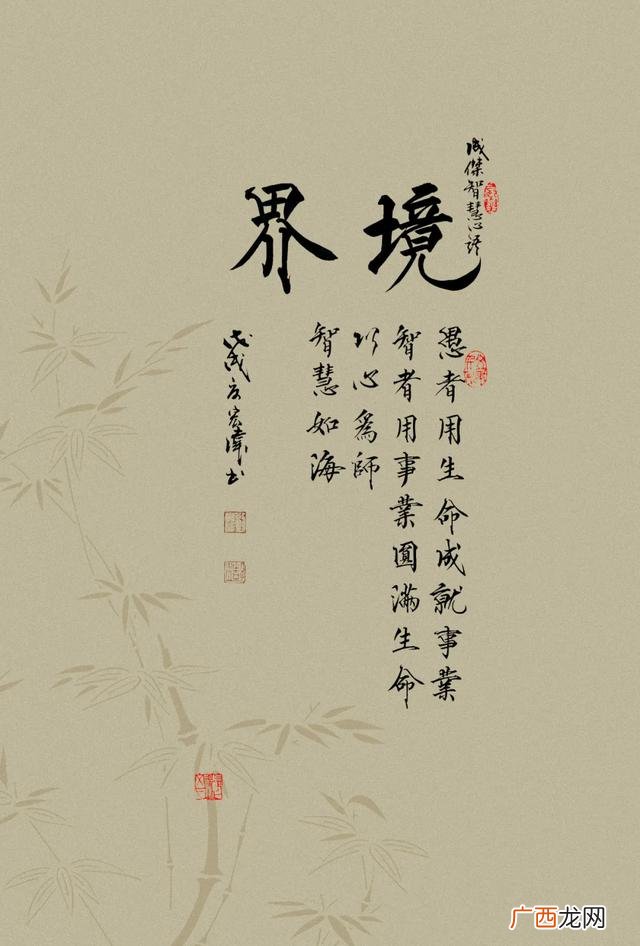 成傑智慧心语
境界
愚者用生命成就事業
智者用事業圓滿生命
以心爲師
智慧如海
戊戌
宏偉书
广西龙网